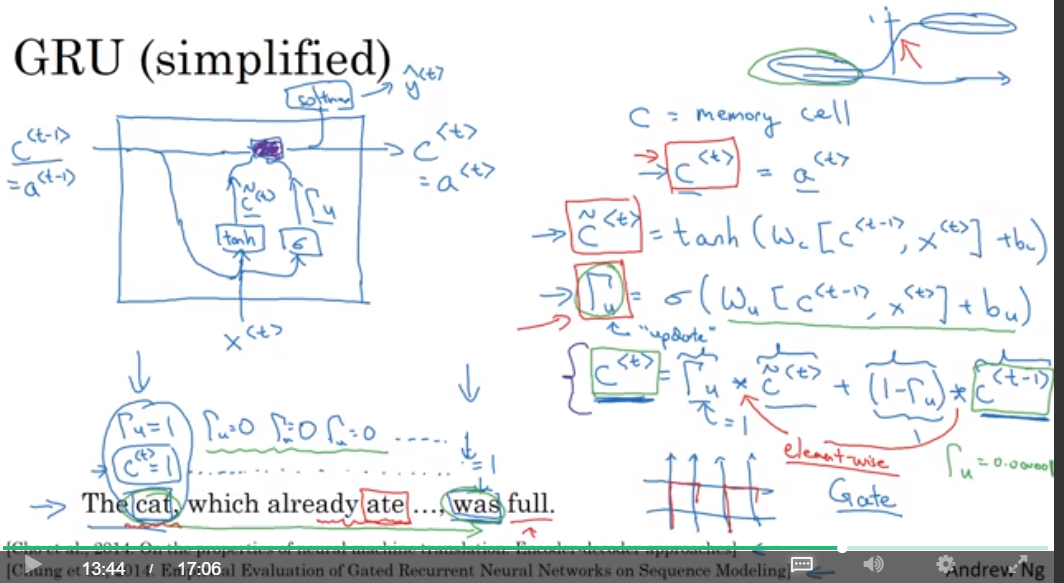 GRU (simplified)
softmax
ŷ<t>
c<t-1>
= a<t-1>
c̃<t>
Γu
tanh
σ
c<t>
= a<t>
x<t>
c = memory cell
c<t> = a<t>
c̃<t> = tanh (Wc [c<t-1>, x<t>] + bc)
Γu = σ (Wu [c<t-1>, x<t>] + bu)
"update"
c<t> = Γu * c̃<t> + (1-Γu) * c<t-1>
= 1
element-wise
Gate
Γu = 0.000001
Γu=1 Γu=0 Γu=0 Γu=0 .....
c<t>=1 ........ =1
The cat, which already ate ..., was full.
[Cho et al., 2014. On the properties of neural machine translation: Encoder-decoder approaches]
[Chung et al., 2014. Empirical Evaluation of Gated Recurrent Neural Networks on Sequence Modeling]
Andrew Ng
13:44 / 17:06